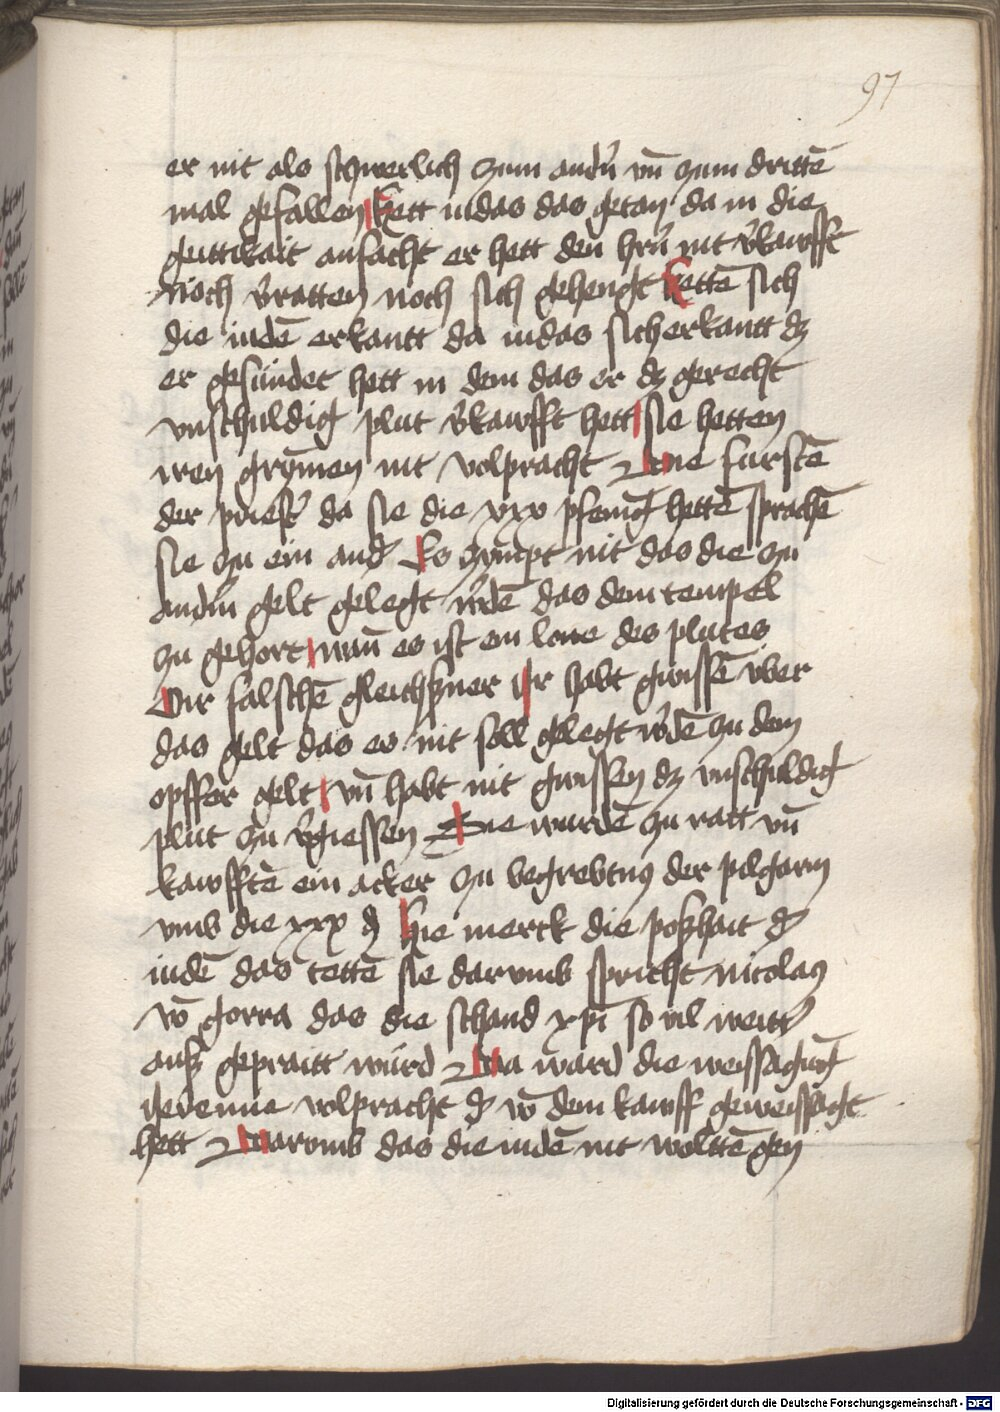 97
er nit als schwerlich zum andn̄ vn̄ zum drittē
mal gefallen Hett iudas das getan da in die
geittikait anfacht er hett den hrn̄ nit v̄kawfft
noch v̄ratten noch sich gehengt Hettē sich
die iudē erkantt da iudas sich erkantt dz
er gesündet hett in dem das er dz gerecht
vnschuldig plut v̄kawfft hett sie hetten
iren grym̄en nit volpracht Die fürstē
der priest̄ da sie die xxx pfening hettē sprachē
sie zu ein and̄ Es zympt nit das die zu
andm̄ gelt gelegt w̄dē das dem tempel
zu gehort wan̄ es ist ein lone des plutes
Dir falschē gleichszner Ir habt gwissē vber
das gelt das es nit soll gelegt w̄dē zu dem
opffer gelt vn̄ habt nit gwissen dz vnschuldig
plut zu v̄giessen Sie wurdē zu ratt vn̄
kawfftē ein acker zu begrebtnus der pilgarin
vmb die xxx ₰ Hie merck die poszhait d̄
iudē das tettē sie darvmb spricht nicolaus
vō gorra das die schand xp̄i so vil weitt̄
ausz gepraitt würd Da ward die weissagung
ieremie volpracht d̄ vō dem kawff geweissagt
hett Warvmb das die iudē nit woltē gen
Digitalisierung gefördert durch die Deutsche Forschungsgemeinschaft - DFG